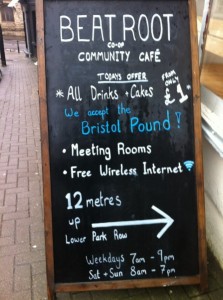 BEAT ROOT
CO-OP
COMMUNITY CAFÉ
TODAYS OFFER
* All Drinks + Cakes
FROM ONLY £1*
We accept the
Bristol Pound!
• Meeting Rooms
• Free Wireless Internet
12 metres
up
Lower Park Row
Weekdays 7am - 9pm
Sat + Sun 8am - 7pm